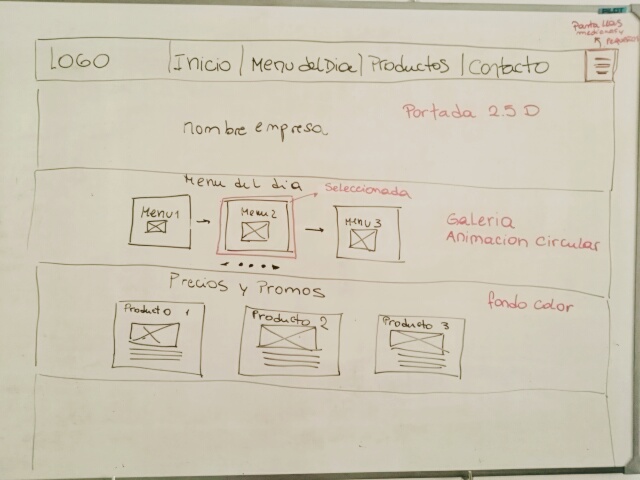 PILOT
Pantallas
medianas y
pequeñas
LOGO
Inicio
Menu del Dia
Productos
Contacto
Portada 2.5 D
nombre empresa
Menu del dia
Seleccionada
Menu 1
Menu 2
Menu 3
Galeria
Animacion Circular
Precios y Promos
fondo color
Producto 1
Producto 2
Producto 3